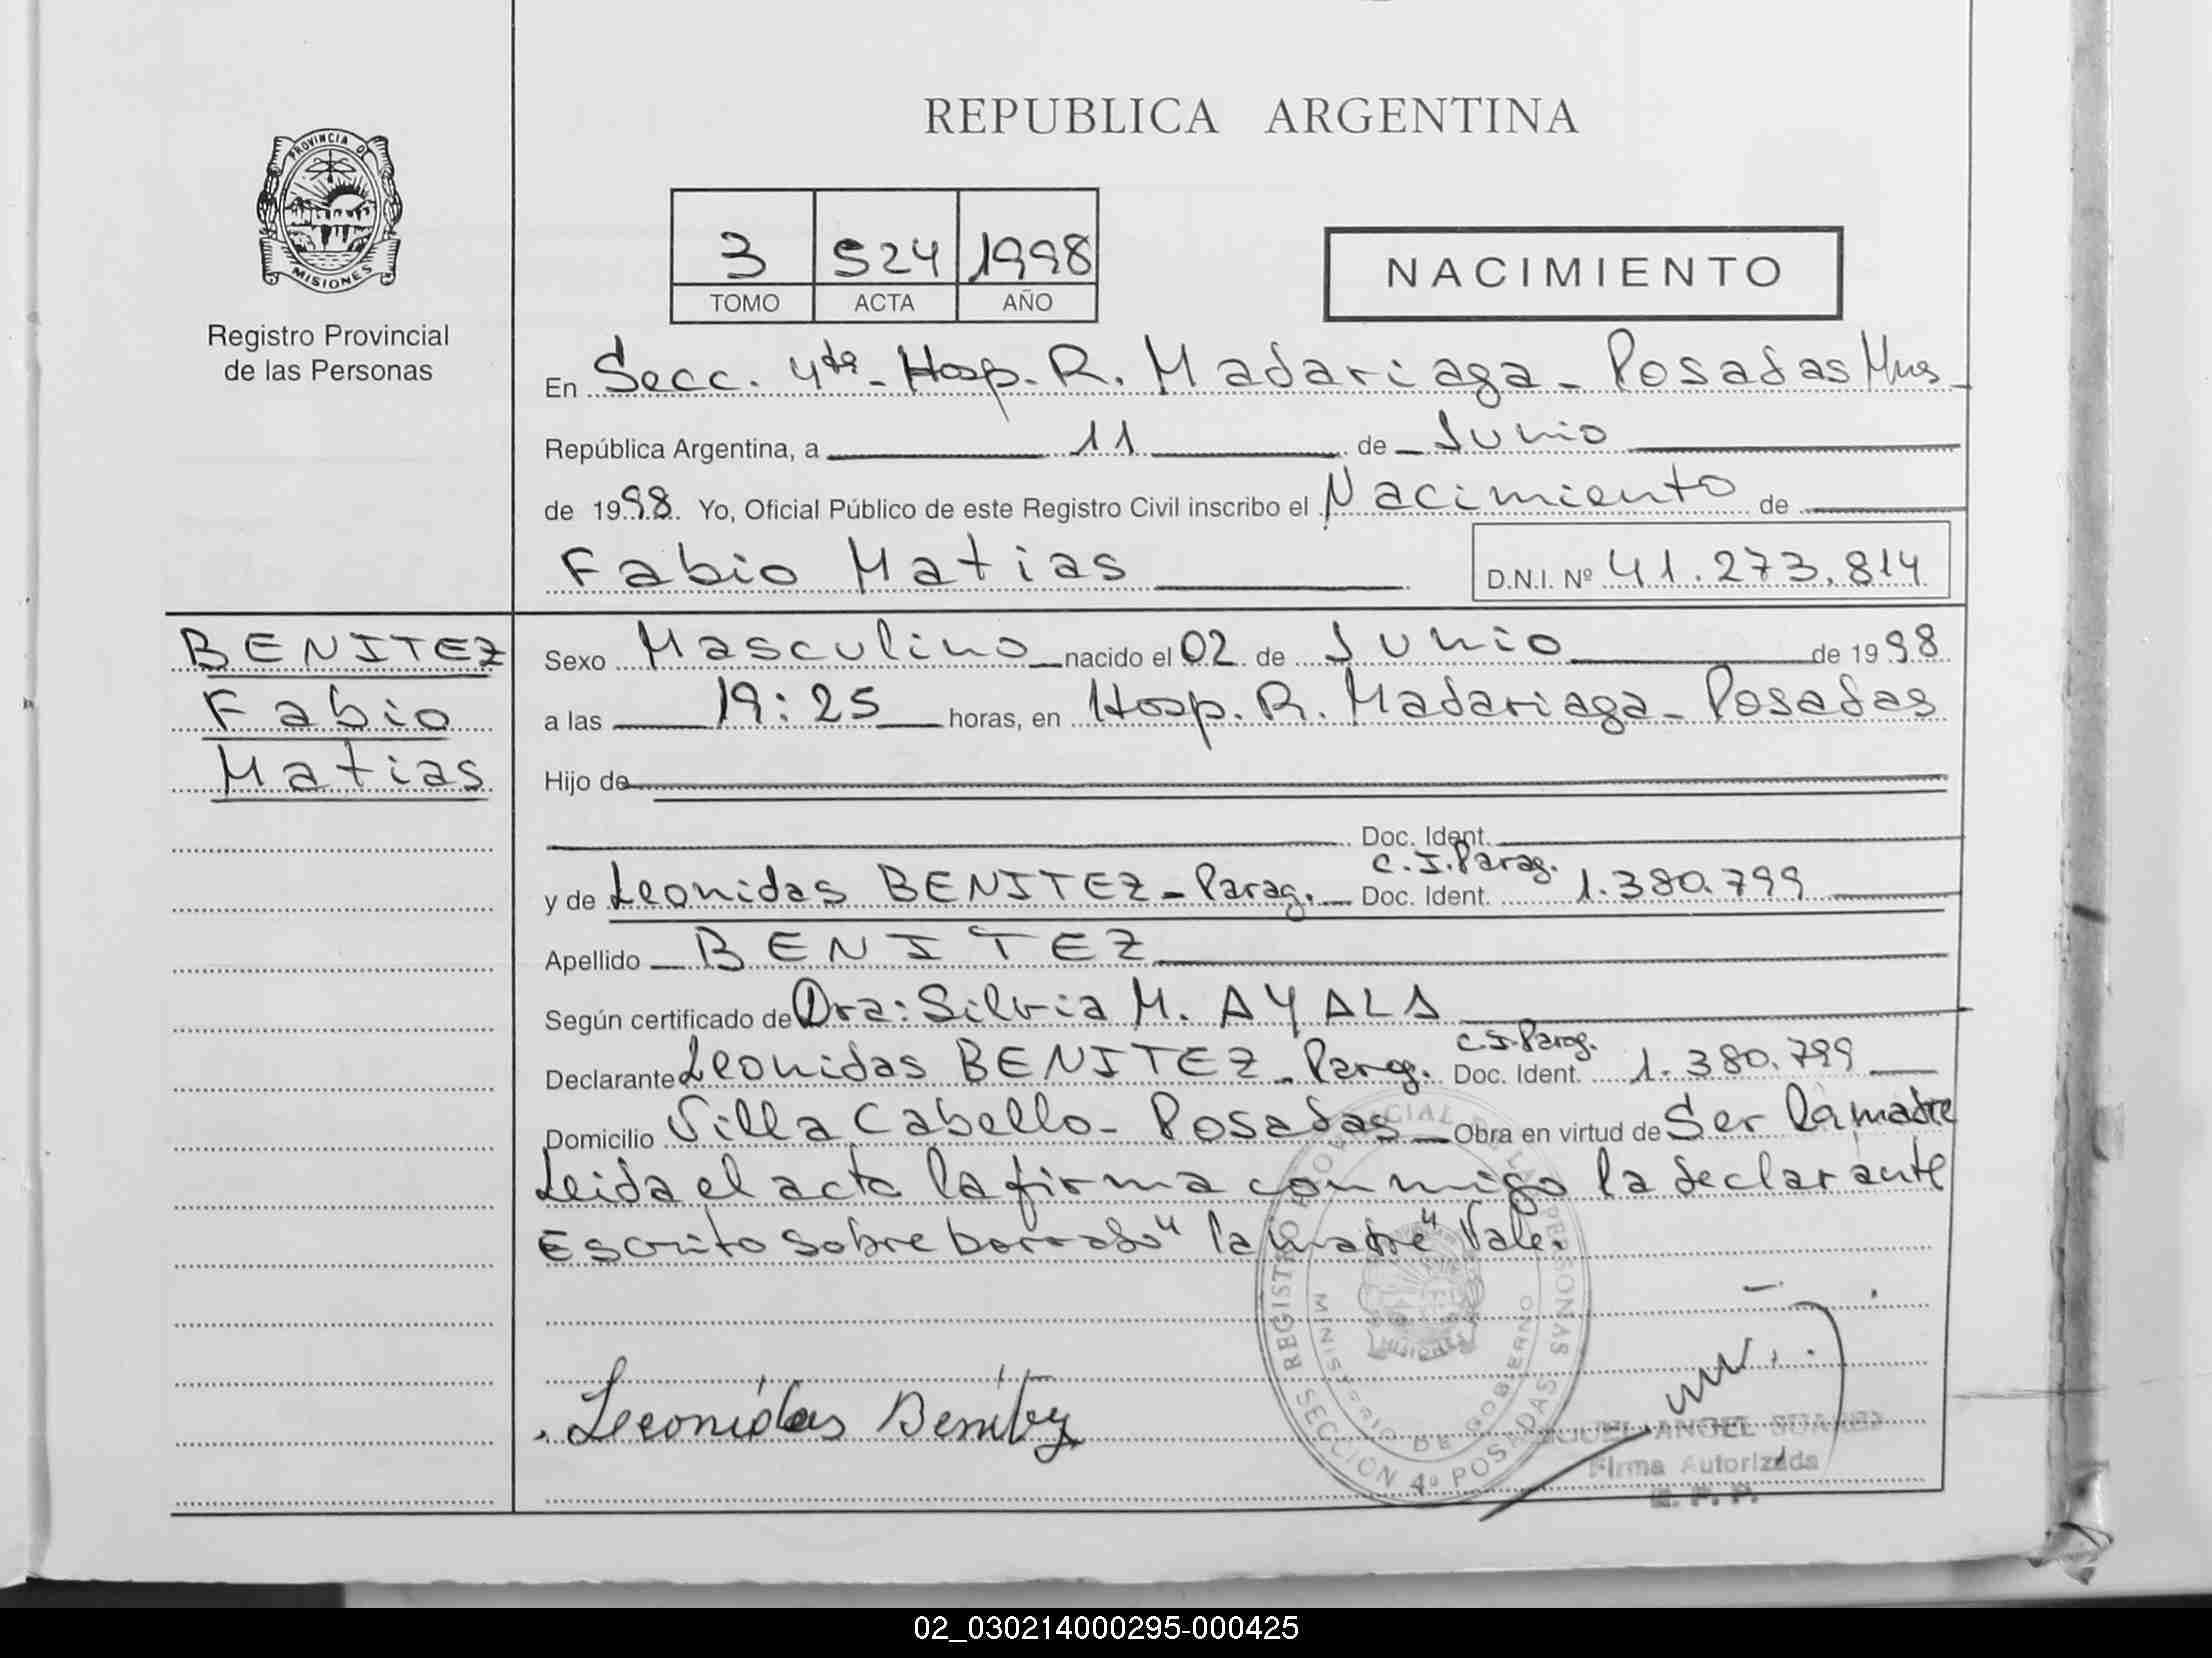 REPUBLICA ARGENTINA
PROVINCIA DE
MISIONES
Registro Provincial
de las Personas
3 524 1998
TOMO ACTA AÑO
NACIMIENTO
En Secc. 4ta - Hosp. R. Madariaga - Posadas Mnes
República Argentina, a 11 de Junio
de 1998. Yo, Oficial Público de este Registro Civil inscribo el Nacimiento de
Fabio Matias D.N.I. Nº 41.273.814
BENITEZ
Fabio
Matias
Sexo Masculino nacido el 02 de Junio de 1998
a las 19:25 horas, en Hosp. R. Madariaga - Posadas
Hijo de
Doc. Ident.
C.I. Parag.
y de Leonidas BENITEZ - Parag. Doc. Ident. 1.380.799
Apellido BENITEZ
Según certificado de Dra: Silvia M. AYALA
C.I. Parag.
Declarante Leonidas BENITEZ - Parag. Doc. Ident. 1.380.799
Domicilio Villa Cabello - Posadas Obra en virtud de Ser la madre
Leida el acta la firma conmigo la declarante
Escrito sobre borrado "la madre" Vale.
REGISTRO PROVINCIAL DE LAS PERSONAS
MINISTERIO DE GOBERNO
MISIONES
SECCION 4º POSADAS
Leonidas Benitez
MIGUEL ANGEL
Firma Autorizada
R. P. P.
02_030214000295-000425